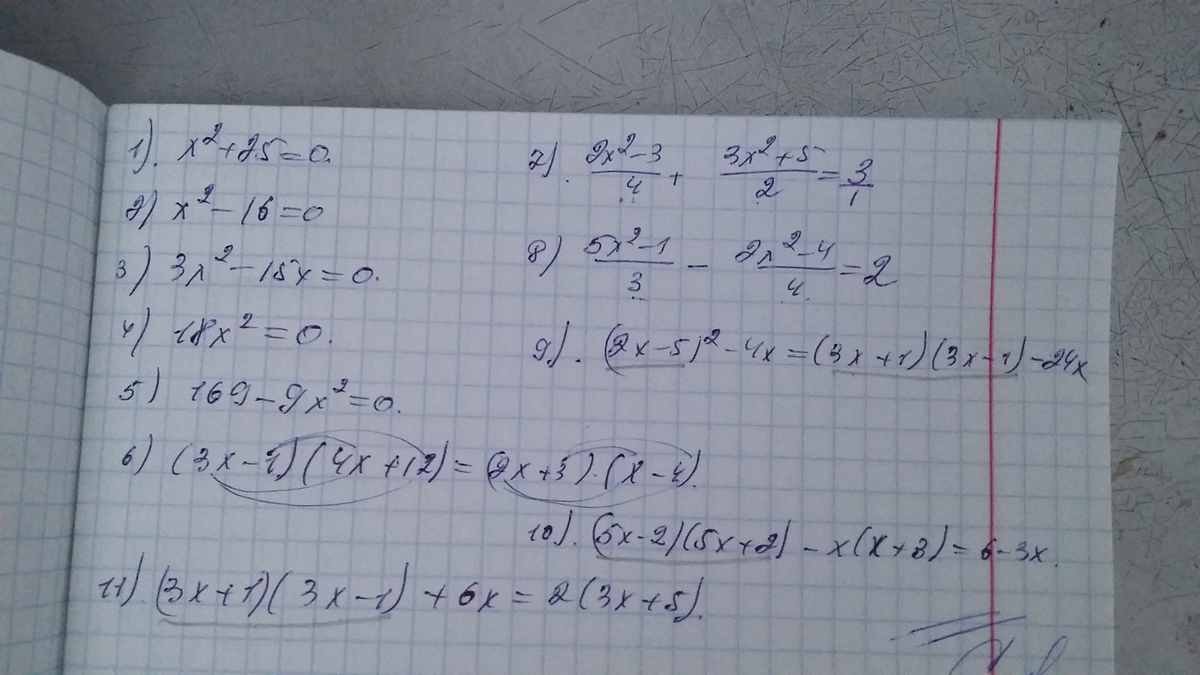 1). x²+25=0.
2) x²-16=0
3) 3x²-15x=0.
4) 18x²=0.
5) 169-9x²=0.
6) (3x-1)(4x+12)=(2x+3)·(x-4).
7). (2x²-3)/4 + (3x²+5)/2 = 3/1
8) (5x²-1)/3 - (2x²-4)/4 = 2
9). (2x-5)²-4x=(3x+1)(3x-1)-24x
10). (5x-2)(5x+2)-x(x+3)=6-3x.
11) (3x+1)(3x-1)+6x=2(3x+5).